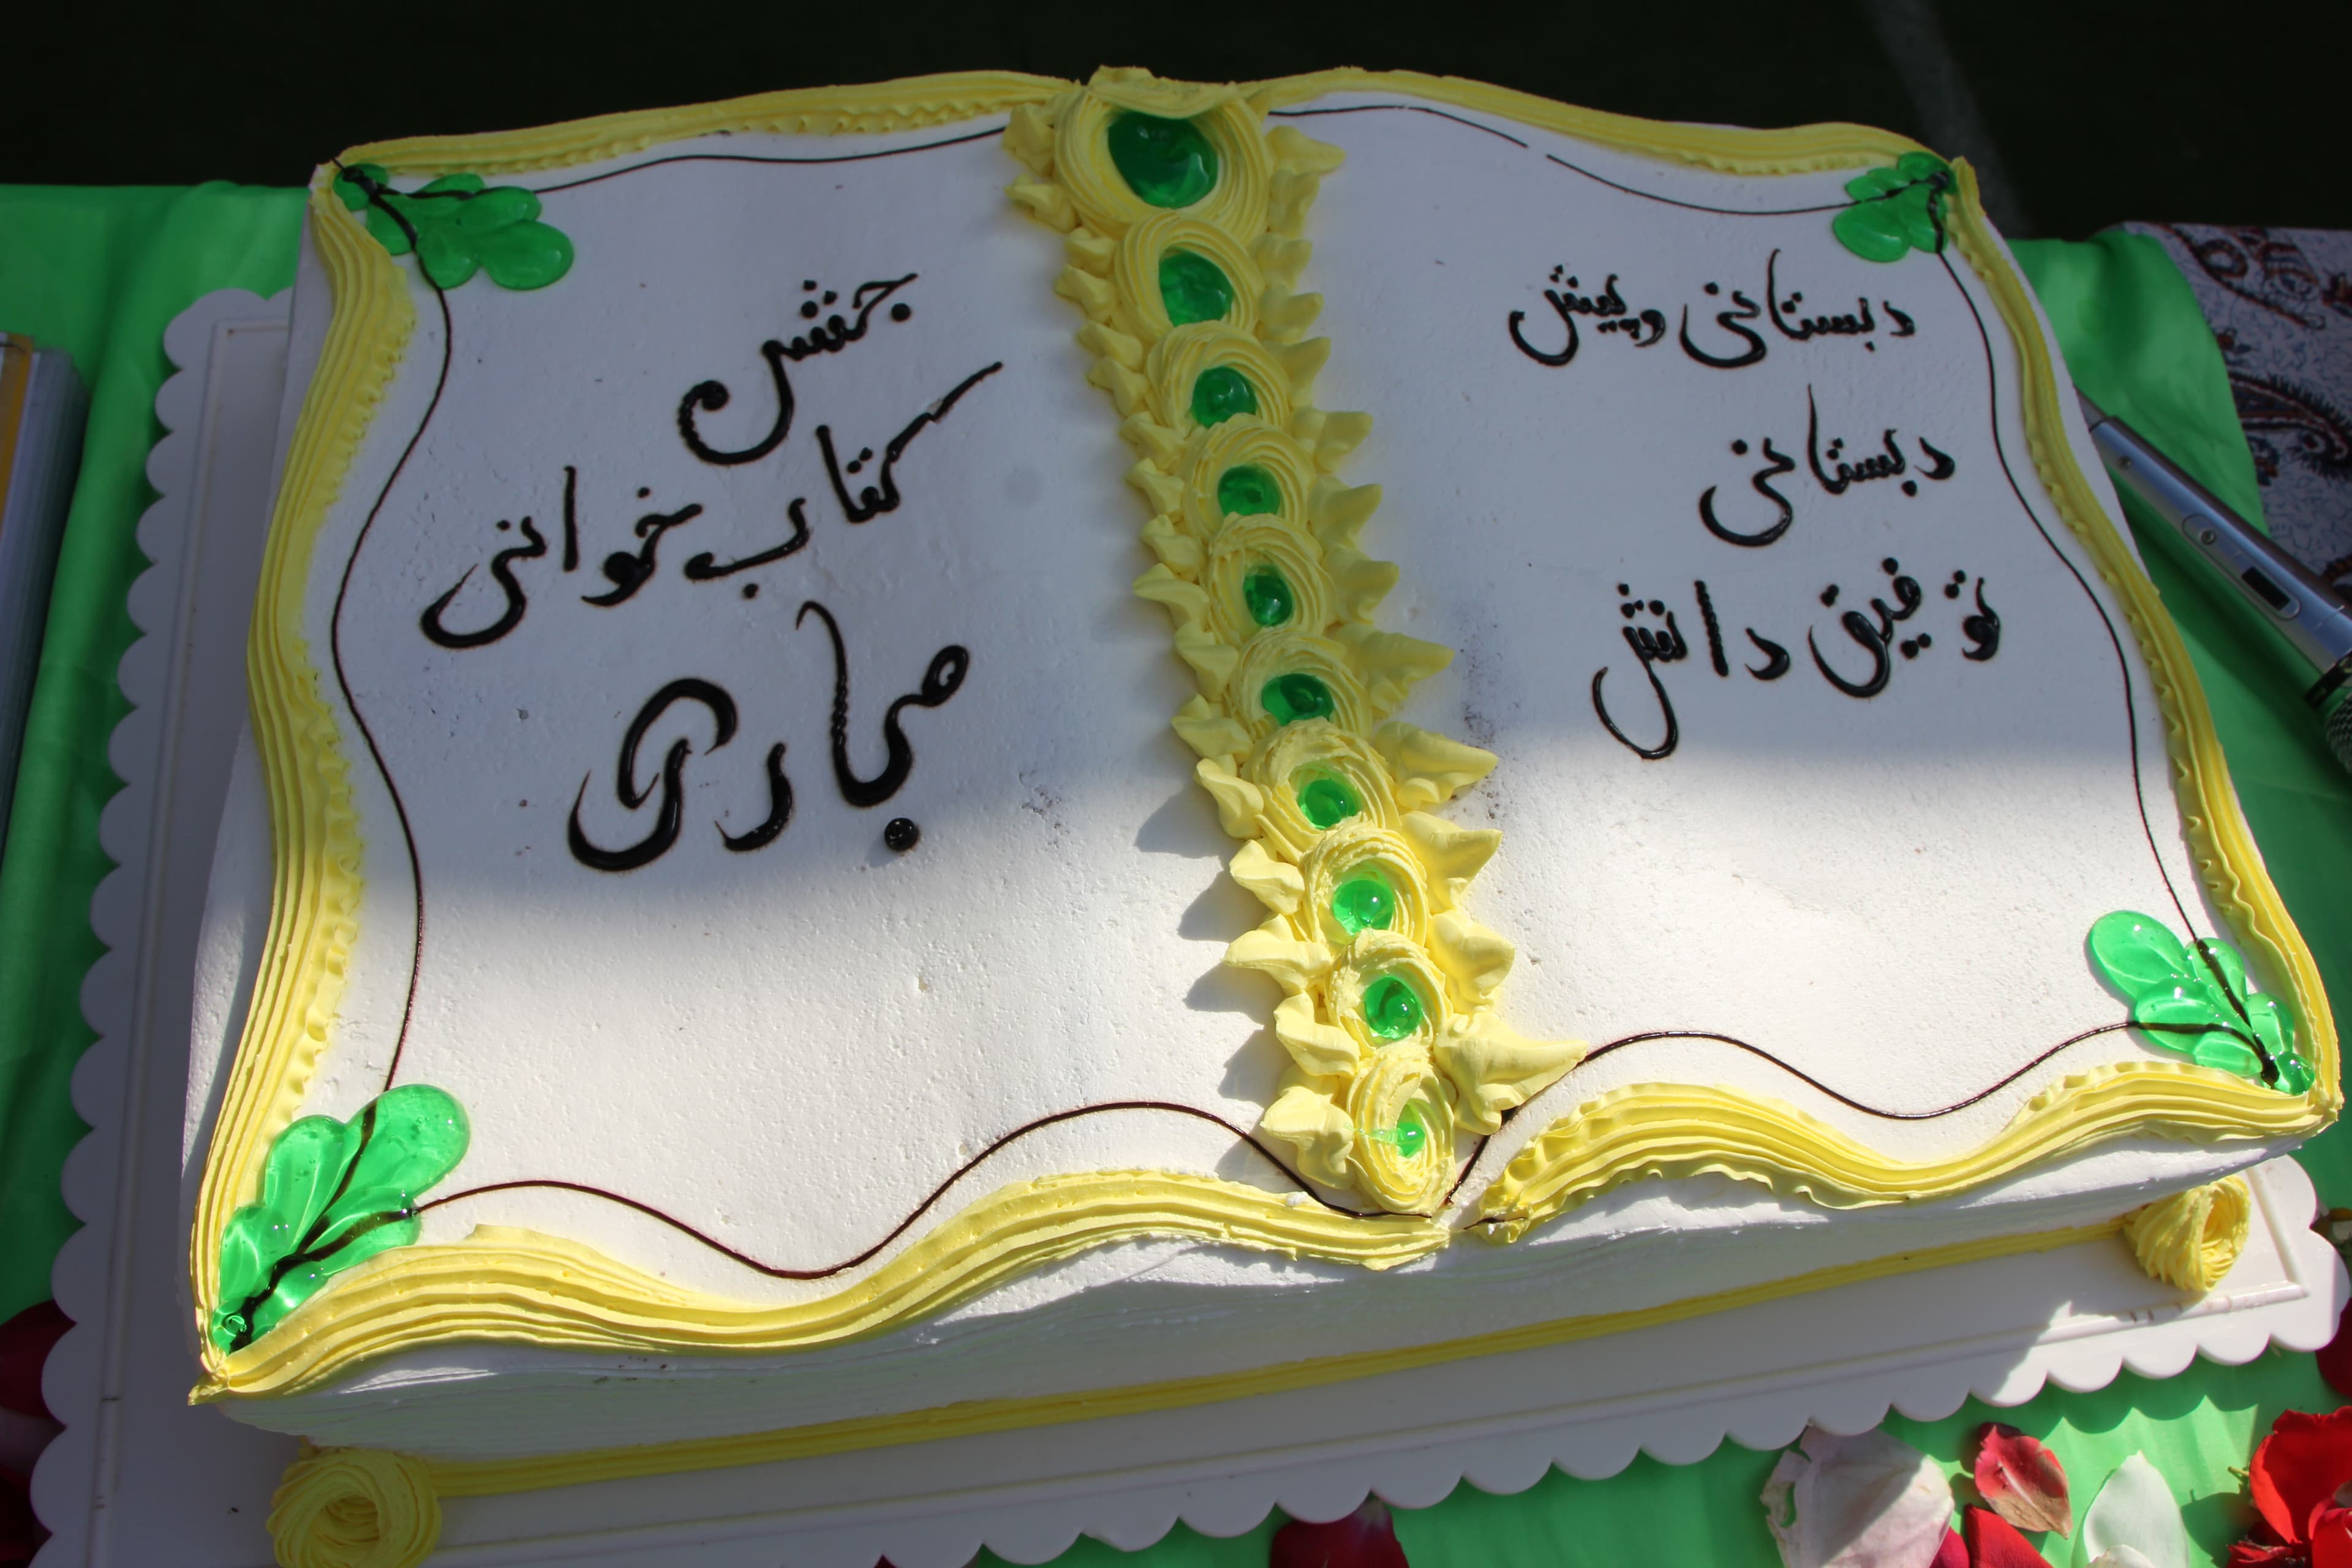 دبستانی و پیش
دبستانی
توفیق دانش
جشن
کتاب خوانی